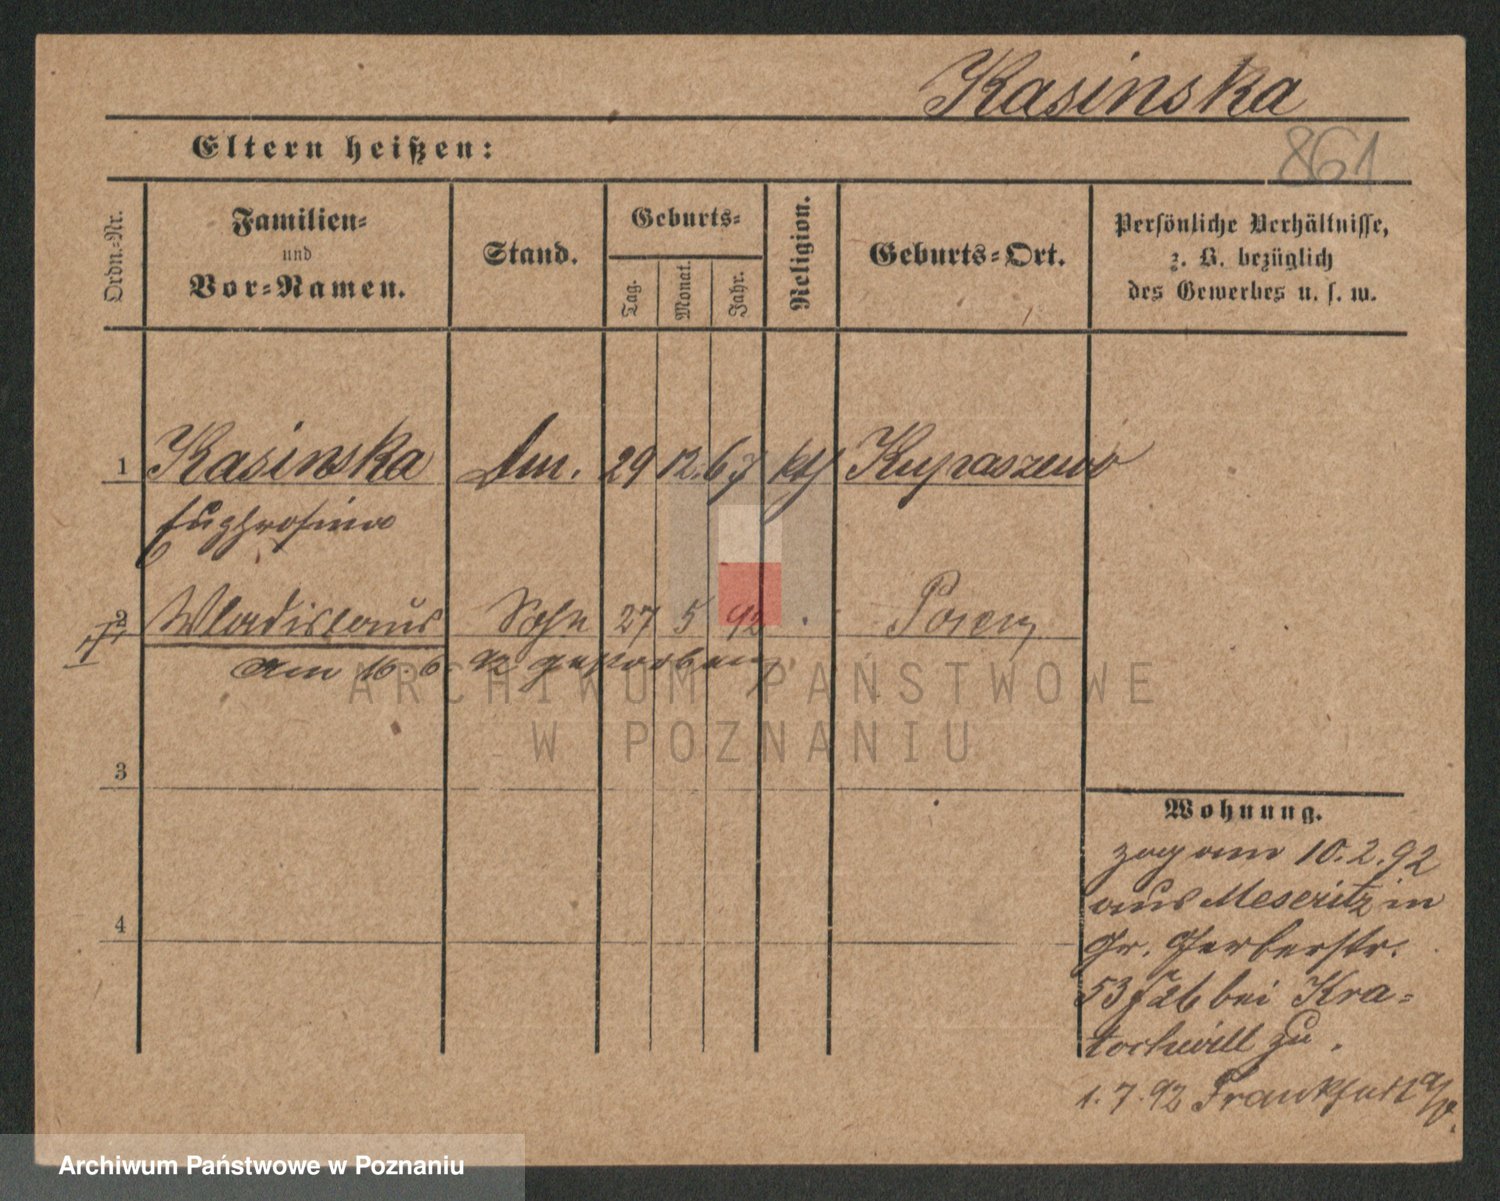 Kasinska
861
Eltern heißen:
Ordn.-Nr.
Familien-
und
Vor-Namen.
Stand.
Geburts-
Tag.
Monat.
Jahr.
Religion.
Geburts-Ort.
Persönliche Verhältnisse,
z. B. bezüglich
des Gewerbes u. s. w.
1 Kasinska 29 12. 67 kth Kupraszewo
Euphrosina
2 Wladislaus Sohn 27 5 92 Posen
am 16. 6. 92 gestorben
3
4
Wohnung.
zog am 10.2.92
aus Meseritz in
Gr. Gerberstr.
53 bei Kra-
tochwill zu.
1.7.92 Frankfurt a/O.
ARCHIWUM PAŃSTWOWE
W POZNANIU
Archiwum Państwowe w Poznaniu